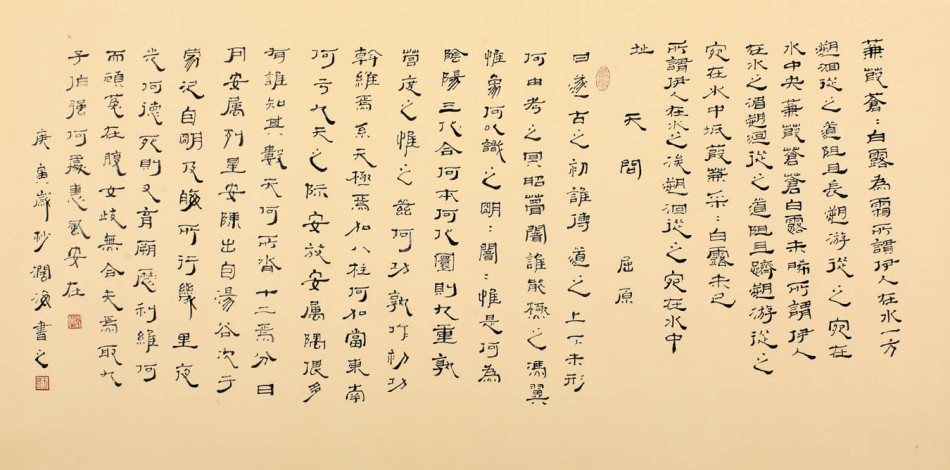 蒹葭蒼:白露為霜所謂伊人在水一方
溯洄從之道阻且長溯游從之宛在
水中央蒹葭蒼蒼白露未晞所謂伊人
在水之湄溯洄從之道阻且躋溯游從之
宛在水中坻葭蒹采:白露未已
所謂伊人在水之涘溯洄從之宛在水中
址 天問 屈原
曰遂古之初誰傳道之上下未形
何由考之冥昭瞢闇誰能極之馮翼
惟象何以識之明:闇:惟是何為
陰陽三代合何本何化圜則九重孰
營度之惟之茲何功孰作初功
斡維焉系天極焉加八柱何加當東南
何亏九天之际安放安屬隅隈多
有誰知其數天何所沓十二焉分日
月安屬列星安陳出自湯谷次于
蒙汜自明及晦所行幾里夜
光何德死則又育厥歷利維何
而顧菟在腹女歧無合夫焉取九
子伯强何處惠風安在
庚寅歲杪海書之